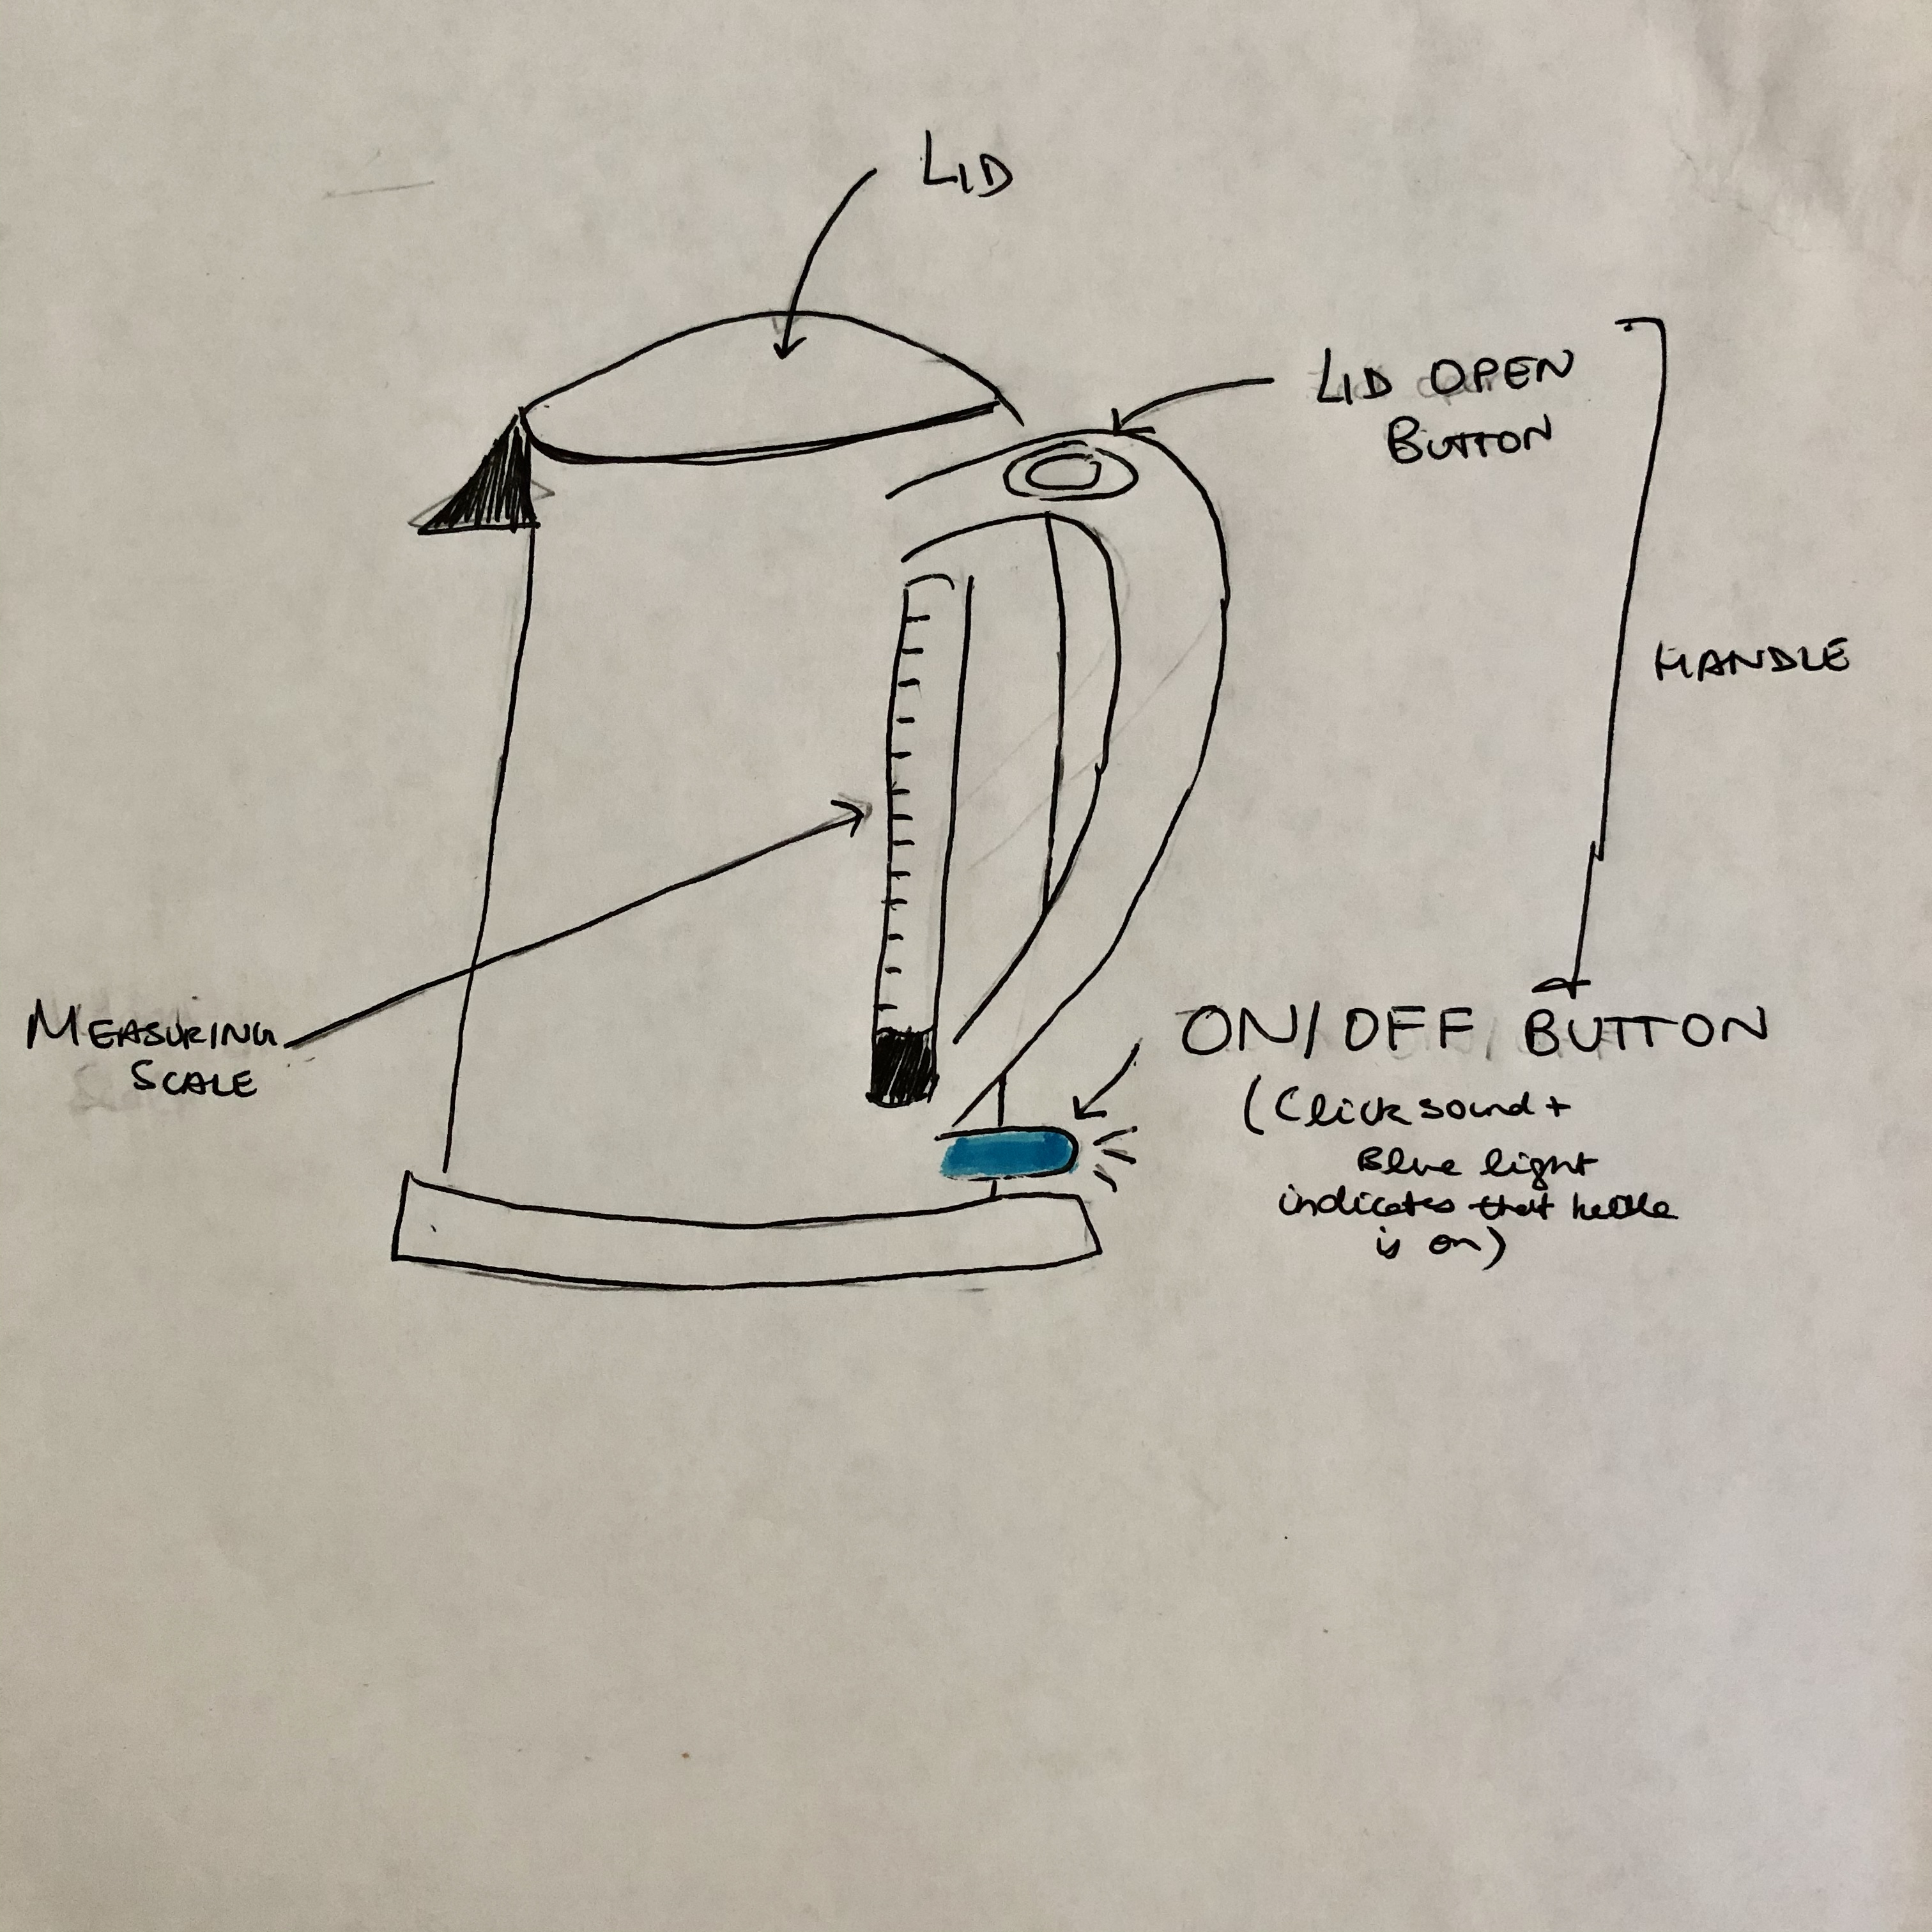 LID
LID OPEN
BUTTON
HANDLE
MEASURING
SCALE
ON/OFF BUTTON
(Click sound +
Blue light
indicates that kettle
is on)